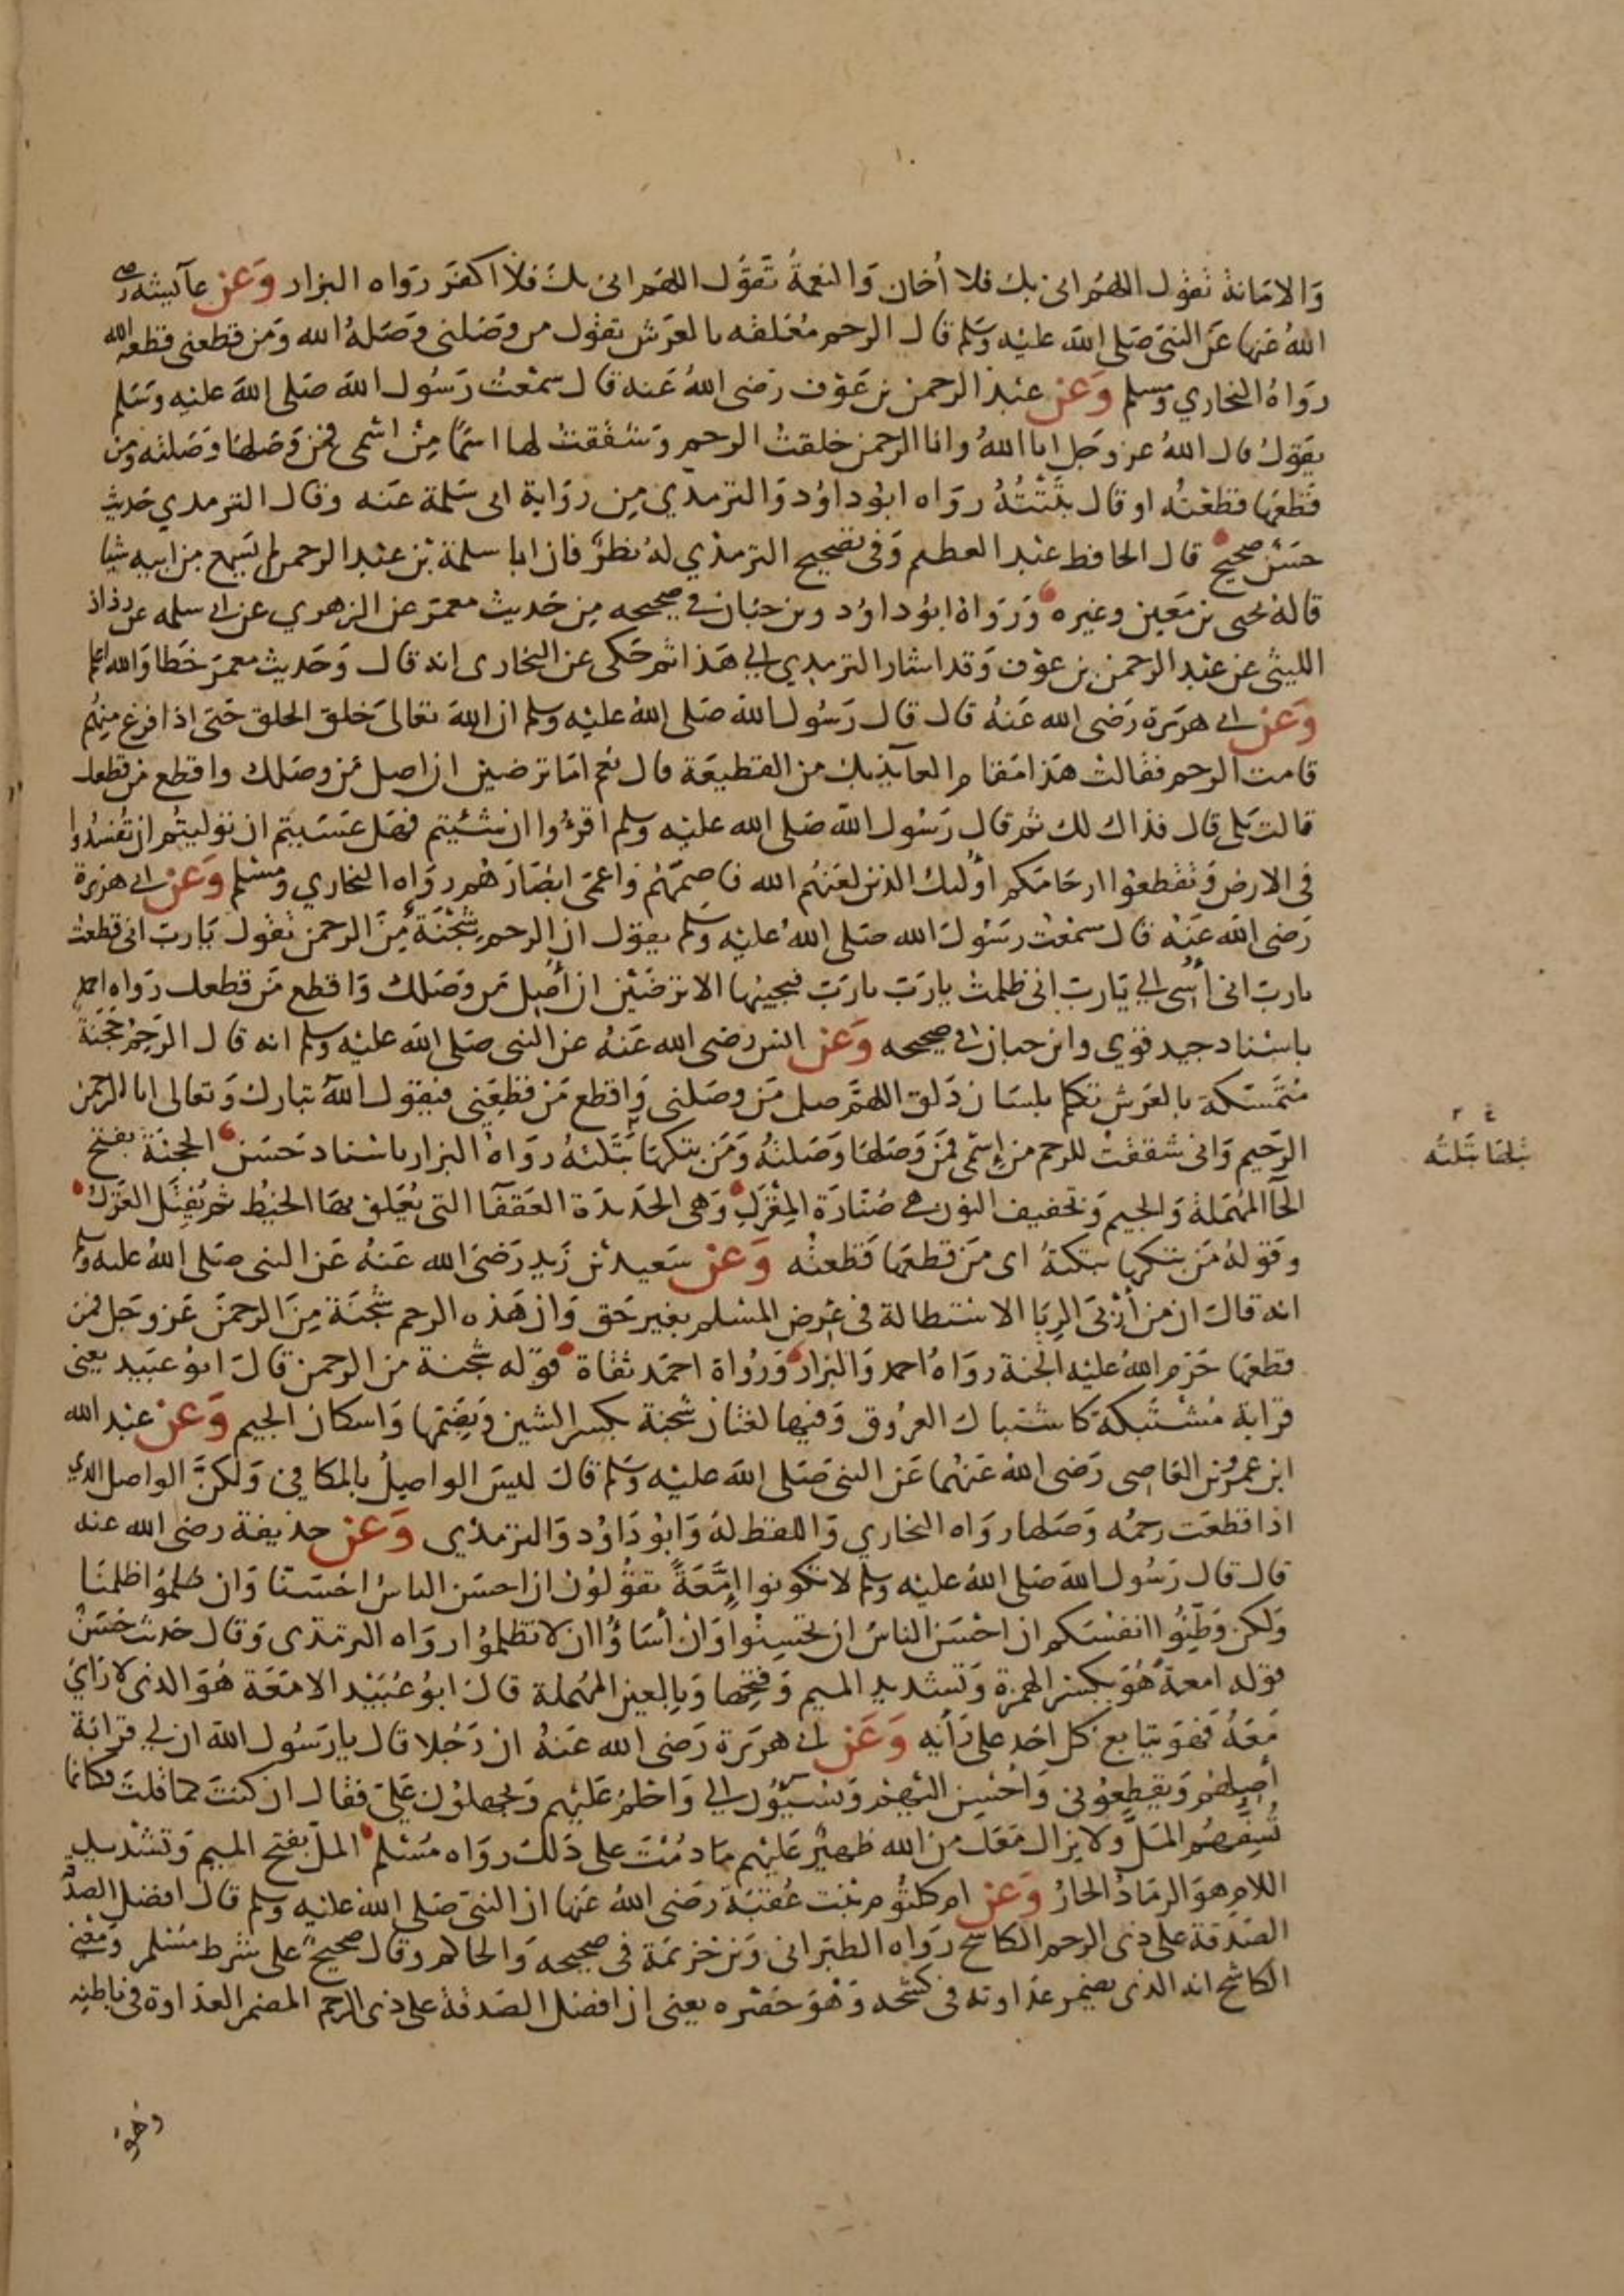 وَالامَانة تقول اللهُم انى بك فلا أُخان وَالنعمةُ تَقوُل اللهَم انى بك فلا اكفرَ رَوَاه البزار وَعَن عآئشه رضى
اللهُ عَنها عَن النبىَ صَلى الله عليْه وسَلم قال الرحم مُعَلقه بالعرَش تقول من وصَلنى وَصَلهُ الله وَمَن قطعنى قطعه الله
رَوَاهُ البخاري ومسلم وَعَن عبْد الرحمن بن عَوْف رَضى اللهُ عَنه قال سمعْتُ رَسُول الله صَلى الله عليْه وَسَلم
يقَول قال اللهُ عز وجَل انا اللهُ وانا الرحمن خلقتُ الرحم وَشقَقتُ لها اسمًا مِنْ اسْمى فمن وَصَلهَا وَصَلته ومن
قَطعَها قطعْته او قال بَتَتُّهُ رَوَاه ابُوداوُد وَالترمذي مِن روَاية ابى سَلمة عَنه وقال الترمدي حَديث
حسَنٌ صحيحٌ قال الحافظ عبْد العظيم وَفى تصحيح الترمذي لهُ نظرٌ فان ابا سلمة بْن عبْد الرحمن لم يَسمع من ابيه شيا
قاله يحى بن مَعين وغيره وَرَوَاهُ ابوُ داوُد وبن حبَان فى صحيحه مِن حَديث معمرَ عن الزهرى عن ابى سلمه عن رداد
الليثى عَن عبْد الرحمن بن عوْف وَقد اشار الترمدي الي هَذا ثم حَكى عن البخارى انه قال وَحَديث معمرَ خَطا وَالله اعلم
وَعَن ابى هرَيَرة رَضى الله عَنهُ قال قال رَسُول الله صَلى اللهُ عليْه وسلم ان اللهَ تعَالىَ خلق الخلق حَتىَ اذا فرغ مِنهُم
قامت الرحم فقالتْ هَذا مَقام العآئذ بك من القطيعَة قال نعَم امَا ترضين ان اصل مَن وصَلك واقطع من قطعك
قالت بَلى قال فذاك لك ثم قال رَسُول الله صَلى الله عليْه وسلم اقرَؤُا ان شئيتم فهَل عَسَيتم ان توليتُم ان تُفسدُوا
فى الارض وَتقطعوْا ارحَامَكم أُولئك الذين لعَنَهُم الله فاصَمَهُم وَاعمىَ ابْصَارَهُم رَوَاه البخاري وَمسْلم وَعَن ابى هرَيرَة
رَضى الله عَنْهُ قال سمعْتُ رسُول الله صَلى اللهُ عليْه وَسَلم يقول ان الرحم شِجْنَةٌ مِنَ الرحمن تقول يَا ربّ انى قطعْت
يا ربّ انى أسُى الي يَا ربّ انى ظلمتُ يا رَبّ يا رَبّ فيجيبُها الا ترْضَيْن ان أصل مَن وَصَلك وَاقطع مَن قطعك رَوَاه احمد
باسْناد جيد قوي وابن حبان في صحيحه وَعَن انس رَضى الله عَنهُ عن النبى صَلى الله عليْه وسَلم انه قال الرَحِمُ حُجَنَة
مُتمسّكة بالعَرَش تتكلم بلسَان ذَلق اللهمّ صل مَن وصَلنى وَاقطع مَن قطعَنى فيقول اللهُ تبارك وَتعالى انا الرحمن
الرّحيم وَانى شققتُ للرحم من اسْمى فمَن وَصَلهَا وَصَلتهُ وَمَن بتكها بَتكتهُ رَوَاهُ البزار باسْناد حَسَن الحجنَة بفتح
الحَآ المُهمَلة وَالجيم وَتخفيف النون هى صُنَّارَة المِغْزَل وَهى الحَديدَة العَقفَآ التى يُعَلق بهَا الخيْط ثم يُفتَل الغَزْلُ
وقولهُ مَن بتكها بتكتهُ اى مَن قطعَها قَطعتُه وَعَنْ سَعيد بْن زَيد رَضىَ الله عَنهُ عَن النبى صَلى اللهُ عليه وسلم
انه قال ان من أرْبىَ الرِبَا الاسْتطالة فى عِرض المسْلم بغير حَق وَان هَذه الرحم شِجْنَة مِنَ الرحمن عَز وجَل فمن
قطعَها حَرّم اللهُ عليْه الجنة رَوَاهُ احمد وَالبَزار وَرُوَاة احمَد ثقاة قوله شجنة من الرحمن قال ابوُ عبَيد يعْنى
قرابة مُشتَبكة كاشتباك العرُوق وَفيها لغتان شجنة بكسر الشين وَبضَمّها وَاسكان الجيم وَعَن عبْد الله
ابن عمرو بن العَاصى رَضى اللهُ عَنهُما عَن النبى صَلى اللهَ عليْه وسَلم قال ليسَ الواصِلُ بالمكافىْ وَلكنَّ الواصل الذي
اذا قطعَت رحمُه وَصَلها رَوَاه البخاري وَاللفظ لهُ وَابوُ دَاوُد وَالترمذي وَعَن حذيفة رضى الله عنه
قال قال رَسُول الله صَلى اللهُ عليْه وسلم لا تكونوا اِمَّعَةً تقوُلوُن ان احسَن الناسُ احْسَنّا وَان ظلمُوا ظلمنَا
وَلكن وَطِّنُوا انفسَكم ان احْسَن الناسُ ان تحسِنُوا وَانْ أسَاؤُا ان لا تظلمُوا رَوَاه الترمذى وَقال حَديث حَسَنٌ
قوله امعة هُوَ بكسْر الهمزة وَتشديد الميم وَفتحها وَبالعين المهُملة قال ابوُ عُبَيْد الامّعَة هُوَ الذى لا رَاىَ
مَعَهُ فهوَ يتابع كل احَد على رَأْيه وَعَن ابى هرَيرَة رَضى الله عَنهُ ان رَجُلا قال يا رَسُول الله ان لى قرَابَة
أصِلهُم وَيقطعُونى وَاُحْسِن اليْهم وَيُسيؤُن الي وَاحْلمُ عَليْهم وَيجهلوُن عَليَّ فقال ان كنتَ كما قلتَ فكانما
تُسِفُّهُم المَلَّ وَلا يزال مَعَك من الله ظهيْرٌ عَليْهم مَا دُمْتَ على ذَلكَ رَوَاه مُسْلم الملّ بفتح الميم وَتشديد
اللام هوَ الرمَادُ الحارُ وَعَن ام كلثُوم بنْت عُقبَة رَضى اللهُ عَنها ان النبىّ صَلى اللهُ عليْه وسلم قال افضل الصد
الصَدقة على ذى الرحم الكاشح رَوَاه الطبرَانى وَبن خزيمَة فى صحيحه وَالحاكم وقال صحيحٌ على شرط مُسْلم وَمعْنى
الكاشح انه الذى يضمر عدَاوته فى كشحه وَهوَ خَصْره يعنى ان افضل الصَدقة على ذى الرحم المضمر العدَاوة فى باطنه
وهو